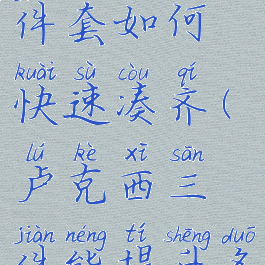 件套如何
kuài sù còu qí
快速凑齐(
lú kè xī sān
卢克西三
jiàn néng tí shēng duō
件能提升多